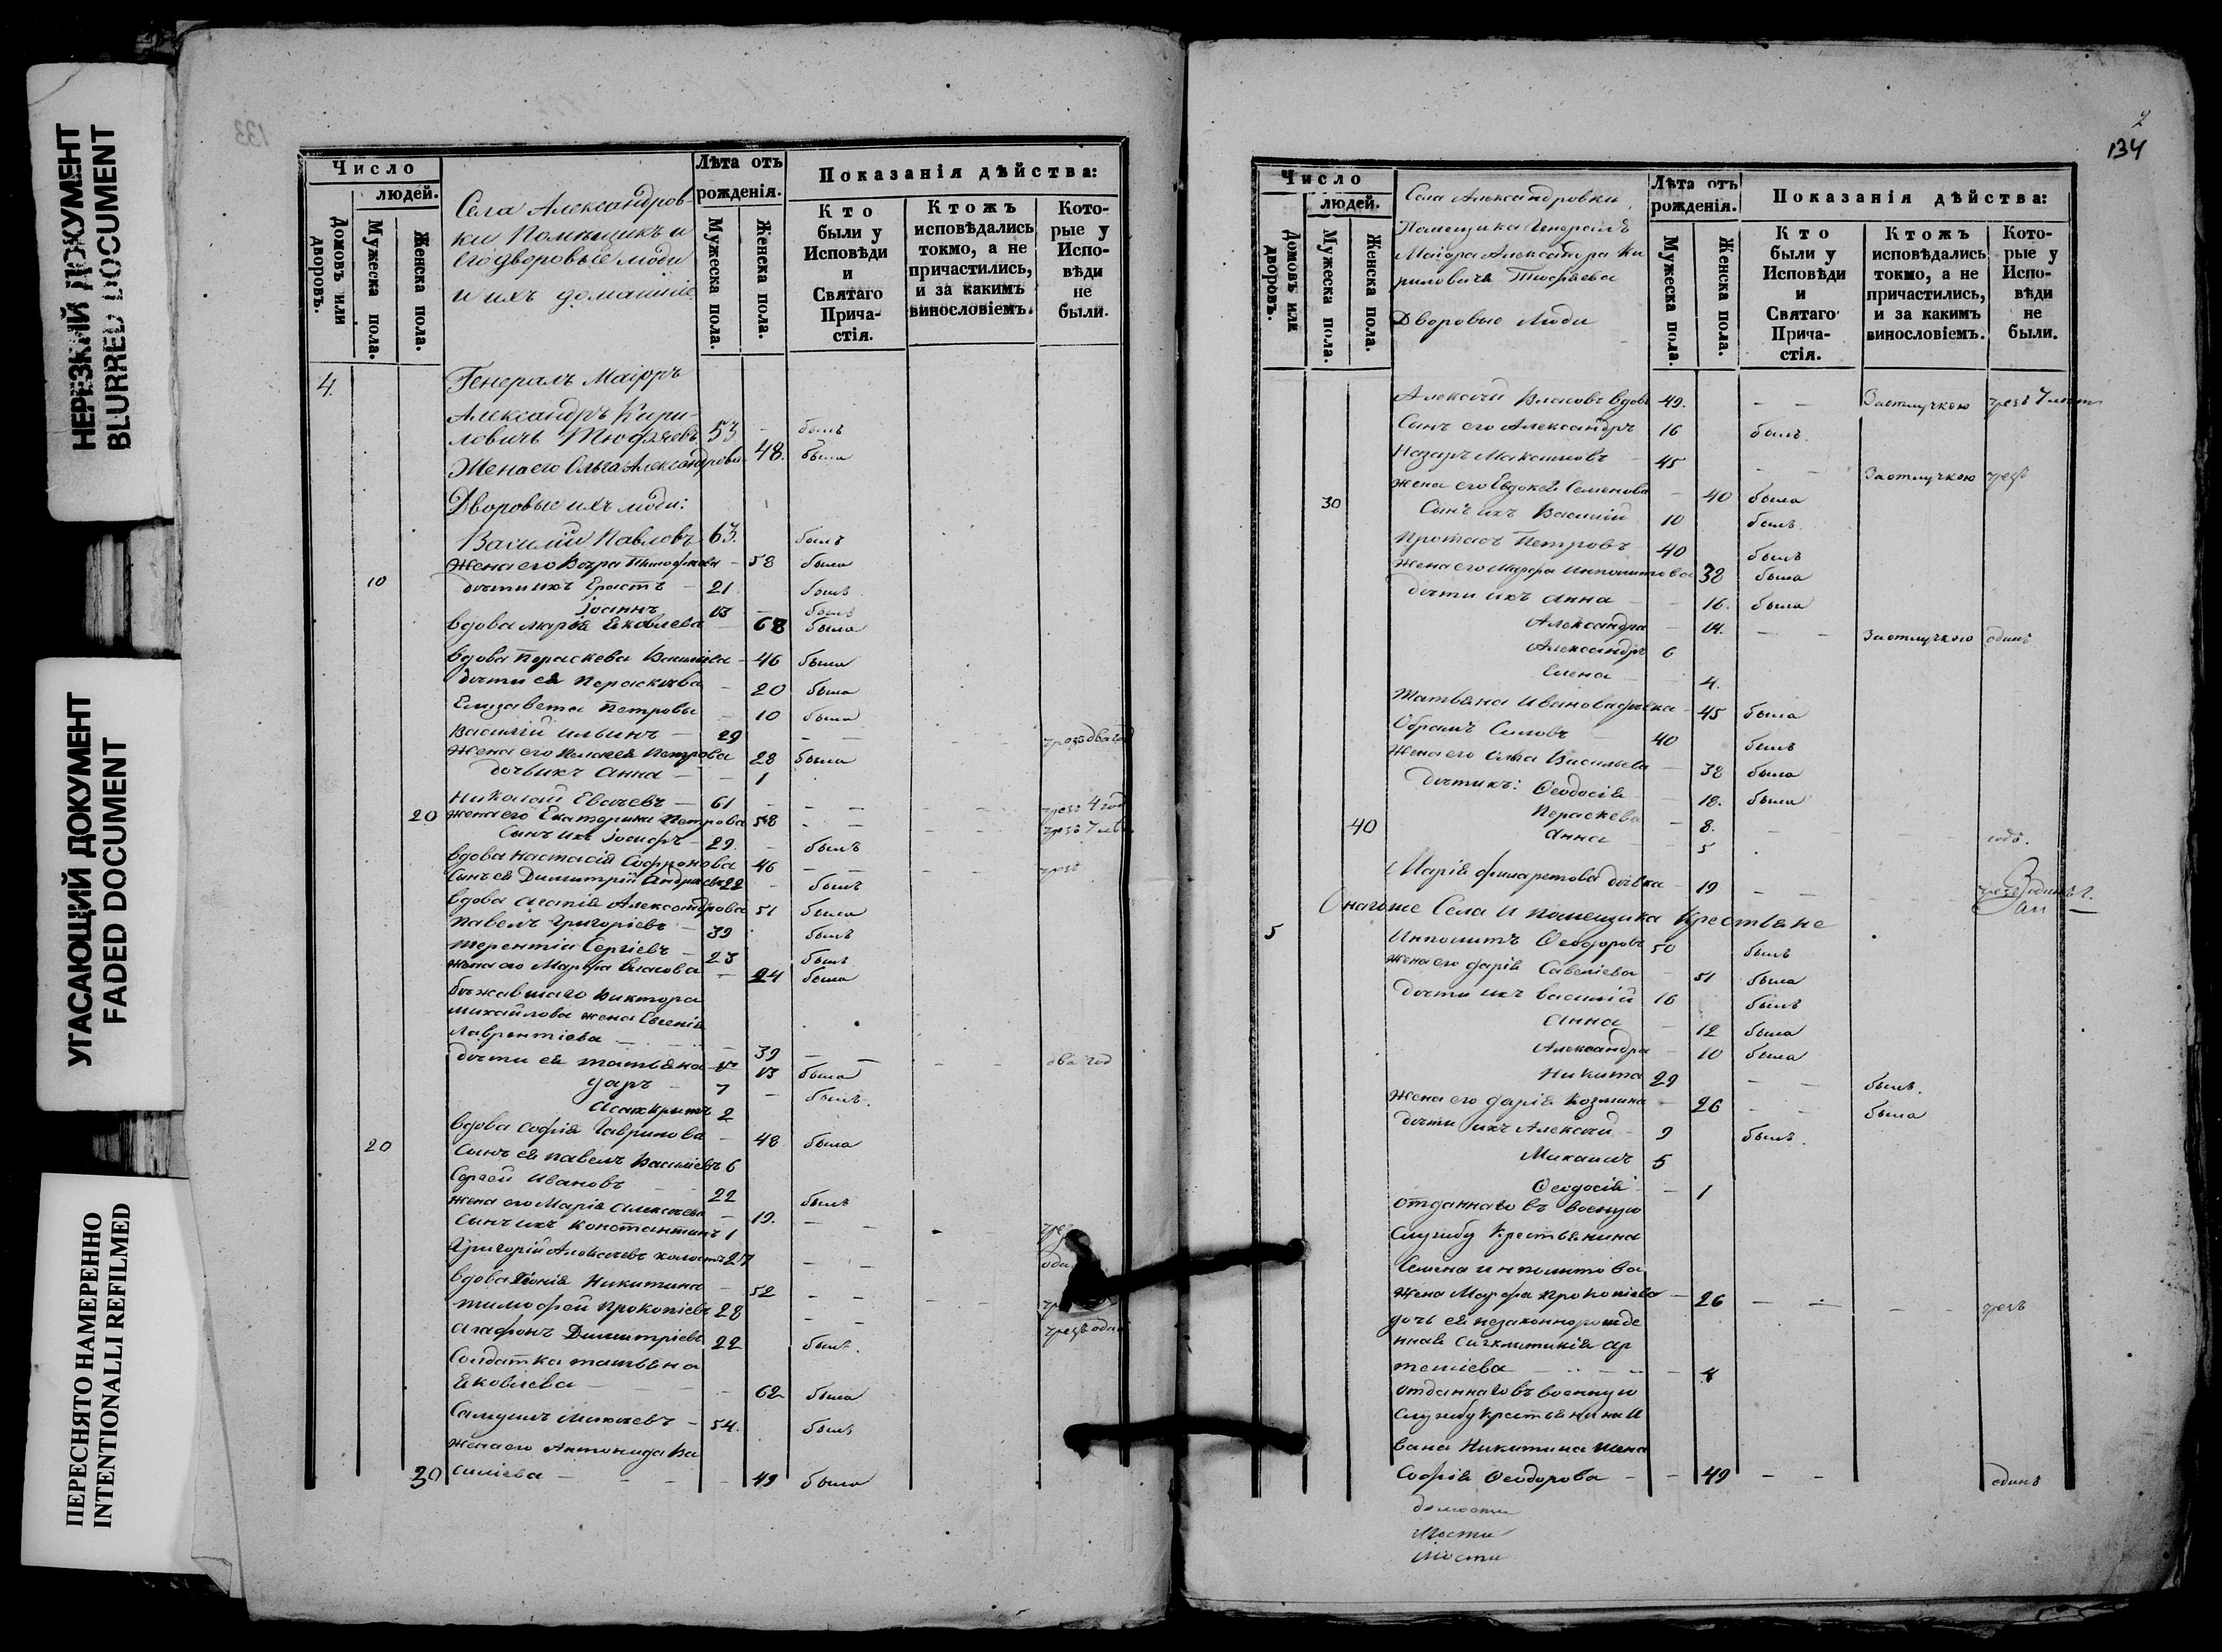 НЕРЕЗКИЙ ДОКУМЕНТ
BLURRED DOCUMENT
УГАСАЮЩИЙ ДОКУМЕНТ
FADED DOCUMENT
ПЕРЕСНЯТО НАМЕРЕННО
INTENTIONALLI REFILMED
133
Число
людей.
Домовъ или дворовъ.
Мужеска пола.
Женска пола.
Села Александров-
ки Помѣщикъ и
его дворовые люди
и ихъ домашніе
Лѣта отъ рожденія.
Мужеска пола.
Женска пола.
Показанія дѣйства:
Кто были у Исповѣди и Святаго Прича-стія.
Ктожъ исповѣдались токмо, а не причастились, и за какимъ винословіемъ.
Кото-рые у Испо-вѣди не были.
4. Генералъ Маіоръ
Александръ Кири-
ловичь Тюфяевъ 53 - былъ
Жена его Ольга Александрова 48. была
Дворовые ихъ люди:
Василій Павловъ 63. былъ
Жена его Вѣра Тимофеева - 58 была
10 дѣти ихъ Ерастъ - 21 былъ
Іоаннъ 13 - былъ
вдова Марія Яковлева 68 была
вдова Параскева Василіева - 46 была
дѣти ея Параскева - 20 была
Елизавета Петрова - 10 была
Василій Ильинъ - 29 - - - - чрезъ два год
Жена его Пелагея Петрова 28 была
дочь ихъ Анна - - 1
Николай Евсеевъ - 61 - - - - - чрезъ 4 год
20 жена его Екатерина Петрова 58 - - - - чрезъ 7 лѣтъ
Сынъ ихъ Іосифъ - 29. - былъ
вдова Настасія Софронова 46 - - - - чрезъ
Сынъ ея Димитрій Андреевъ 22 - былъ
вдова Агапія Александрова 51 была
Павелъ Григоріевъ - 39 былъ
Терентій Сергіевъ - 23 былъ
жена его Марѳа Власова - 24 была
бѣжавшаго Виктора
Михайлова жена Евгенія
Лаврентіева - - - - 39 - - - - два год
дѣти ея Татьяна - 13 была
7 - былъ.
Асинкритъ 2
вдова Софія Гаврилова - 48 была
20 Сынъ ея Павелъ Василіевъ 6
Сергей Ивановъ 22 былъ
жена его Марія Алексѣева - 19. - - - -
Сынъ ихъ Константинъ 1
Григорій Алексѣевъ холостъ 27 - -
вдова Никитина - 52 - - - -
Тимофей Прокопіевъ 28 - -
Агафонъ Димитріевъ 22 былъ. чрезъ один
Солдатка Татьяна
Яковлева - - - - 62 была
Самуилъ - 54. былъ
жена его Антонида Ва
30 силіева - - - - 49 была
2
134
Число
людей.
Домовъ или дворовъ.
Мужеска пола.
Женска пола.
Села Александровки
Помещика Генералъ
Маіора Александра Ки
риловича Тюфяева
Дворовые люди
Лѣта отъ рожденія.
Мужеска пола.
Женска пола.
Показанія дѣйства:
Кто были у Исповѣди и Святаго Прича-стія.
Ктожъ исповѣдались токмо, а не причастились, и за какимъ винословіемъ.
Кото-рые у Испо-вѣди не были.
Алексѣй Власовъ вдовъ 49. - - За отлучкою чрезъ 7 лѣтъ
Сынъ его Александръ 16 былъ.
Назаръ Максимовъ - 45 - - За отлучкою чрезъ
жена его Евдокія Семенова - 40 была
30 Сынъ ихъ Василій 10 былъ.
Протасъ Петровъ 40 былъ
жена его Марѳа Ипполитова 38 была
дѣти ихъ Анна - - 16. была
Александра - 14. - - За отлучкою одинъ
Александръ 6
Елена - - 4.
Татьяна Иванова дѣвка - 45 была
Силовъ - 40 былъ
жена его Васильева - 38 была
дѣти ихъ: Ѳеодосія - 18. была
Параскева - 8.
40 Анна 5 годъ.
Марія Филаретова дѣвка - 19 - -
Онагоже Села и помещика Крестьяне
5 Ипполитъ Ѳеодоровъ 50 былъ
жена его Дарія Савеліева 51 была
дѣти ихъ Василій 16 былъ
Анна - 12 была
Александра - 10 была
Никита 29 - - былъ.
жена его Дарія Козмина - 26 - - была
дѣти ихъ Алексѣй - 9 былъ.
Михаилъ 5
Ѳеодосія - 1
отданнаго въ военную
службу крестьянина
Семена Ипполитова
жена Марѳа Прокопіева - 26 - - - - чрезъ
дочь ея незаконнорожде
нная Ар
теміева - - - 4
отданнаго въ военную
службу крестьянина И
вана Никитина жена
Софія Ѳеодорова - - 49 - - одинъ